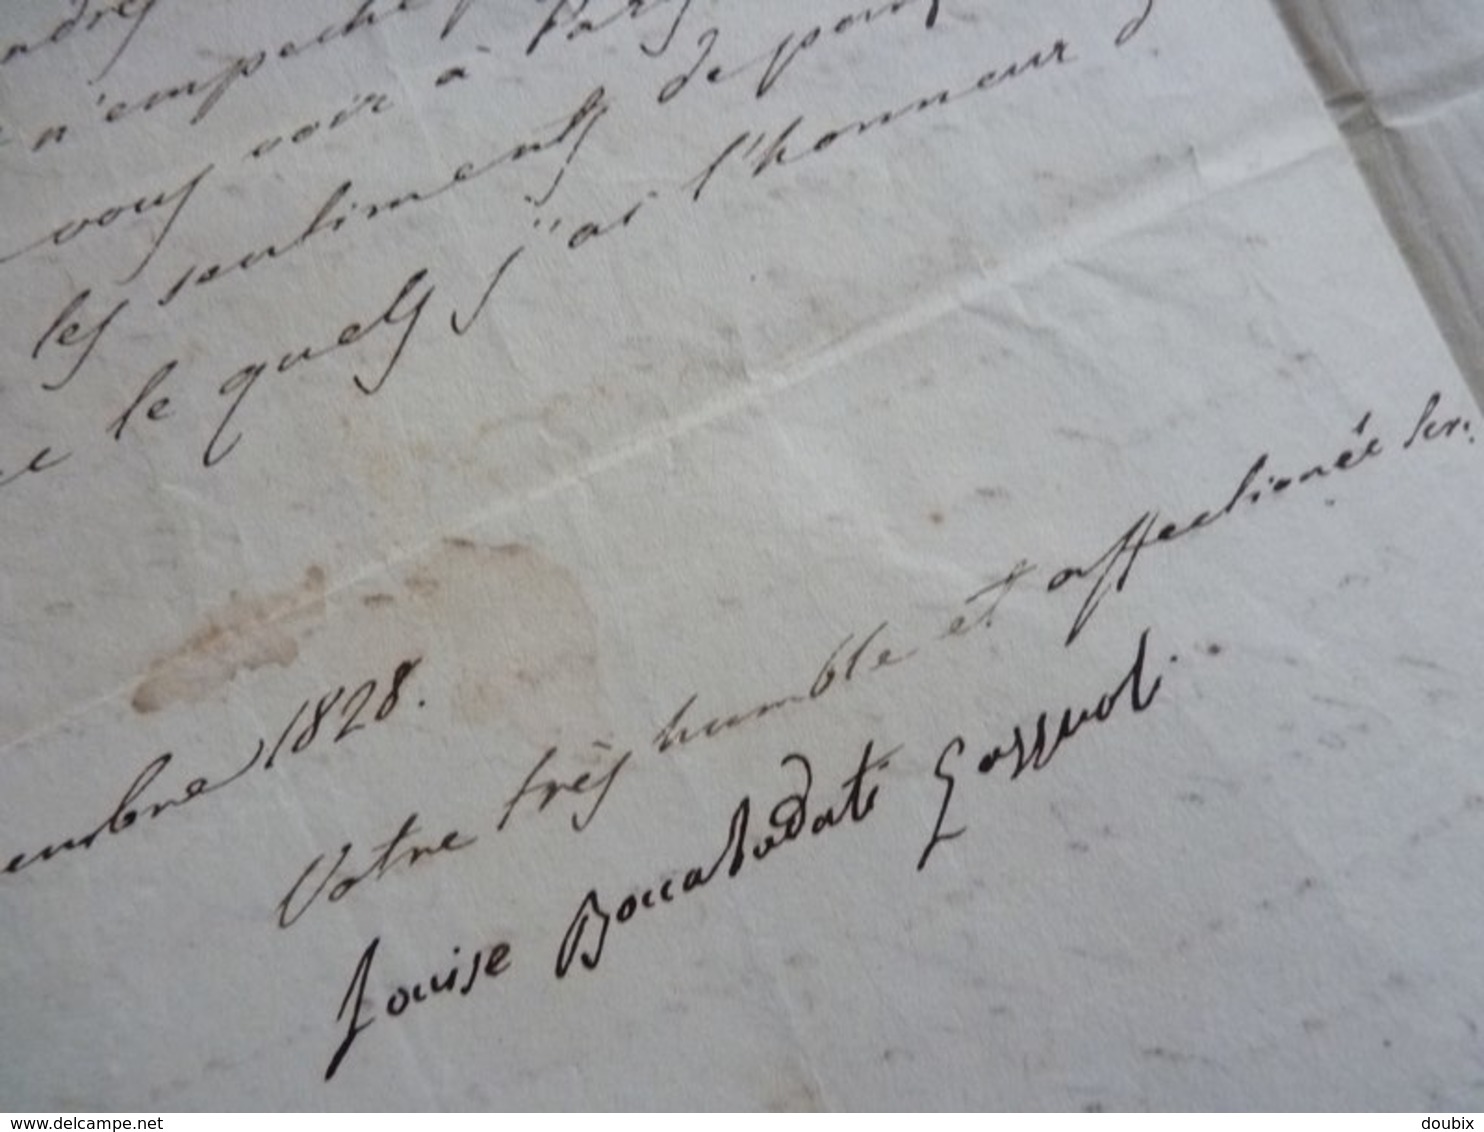 n'empeche
vous voir à Paris
les sentiments de
le quels j'ai l'honneur d
embre 1828.
Votre très humble et affectionée ser.
Louise Boccabadati Gazzuoli
delcampe.net
doubix